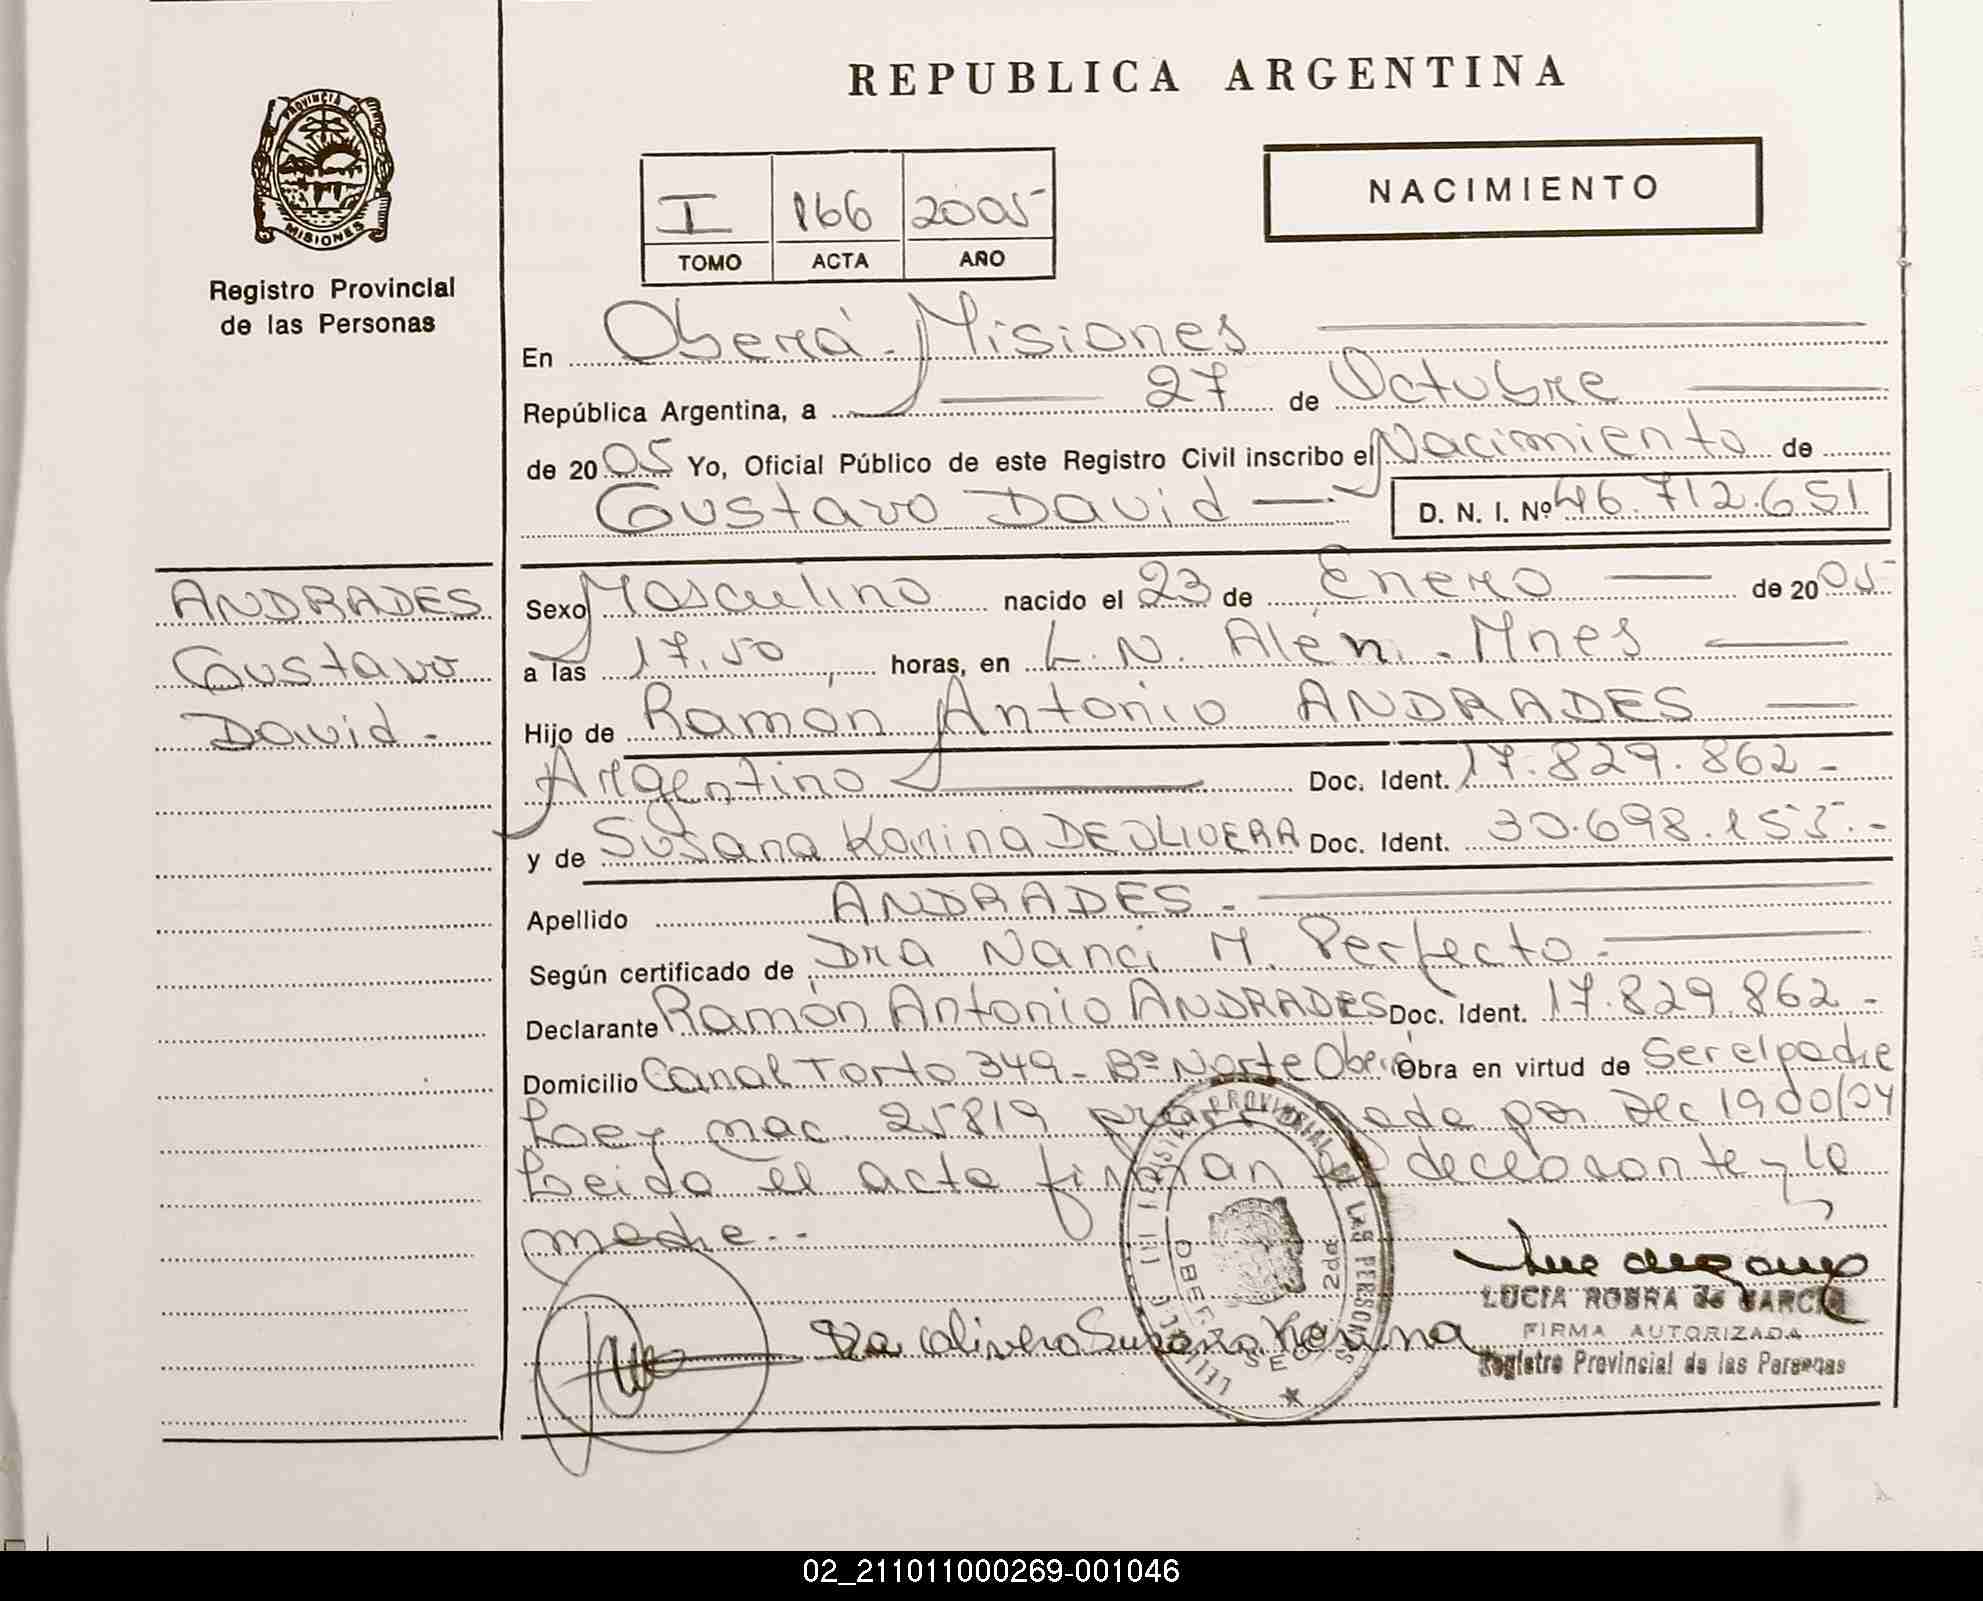 REPUBLICA ARGENTINA
PROVINCIA DE
MISIONES
Registro Provincial
de las Personas
I 166 2005
TOMO ACTA AÑO
NACIMIENTO
En Oberá - Misiones
República Argentina, a 27 de Octubre
de 2005 Yo, Oficial Público de este Registro Civil inscribo el Nacimiento de
Gustavo David D. N. I. Nº 46.712.651
ANDRADES
Gustavo
David.-
Sexo Masculino nacido el 23 de Enero de 2005
a las 17,50 horas, en L. N. Alén. - Mnes
Hijo de Ramón Antonio ANDRADES
Argentino Doc. Ident. 17.829.862 -
y de Susana Karina DE OLIVERA Doc. Ident. 30.698.155.-
Apellido ANDRADES.-
Según certificado de Dra Nanci M. Perfecto.-
Declarante Ramón Antonio ANDRADES Doc. Ident. 17.829.862 -
Domicilio Canal Torto 349 - Bº Norte Oberá Obra en virtud de Ser el padre
Ley nac. 25819 por Dec 1900/04
Leida el acta firman el declarante y la
madre.-
PROVINCIAL DE LAS PERSONAS
2da
Olivera Susana Karina
LUCIA ROBRA de GARCIA
FIRMA AUTORIZADA
Registro Provincial de las Personas
02_211011000269-001046